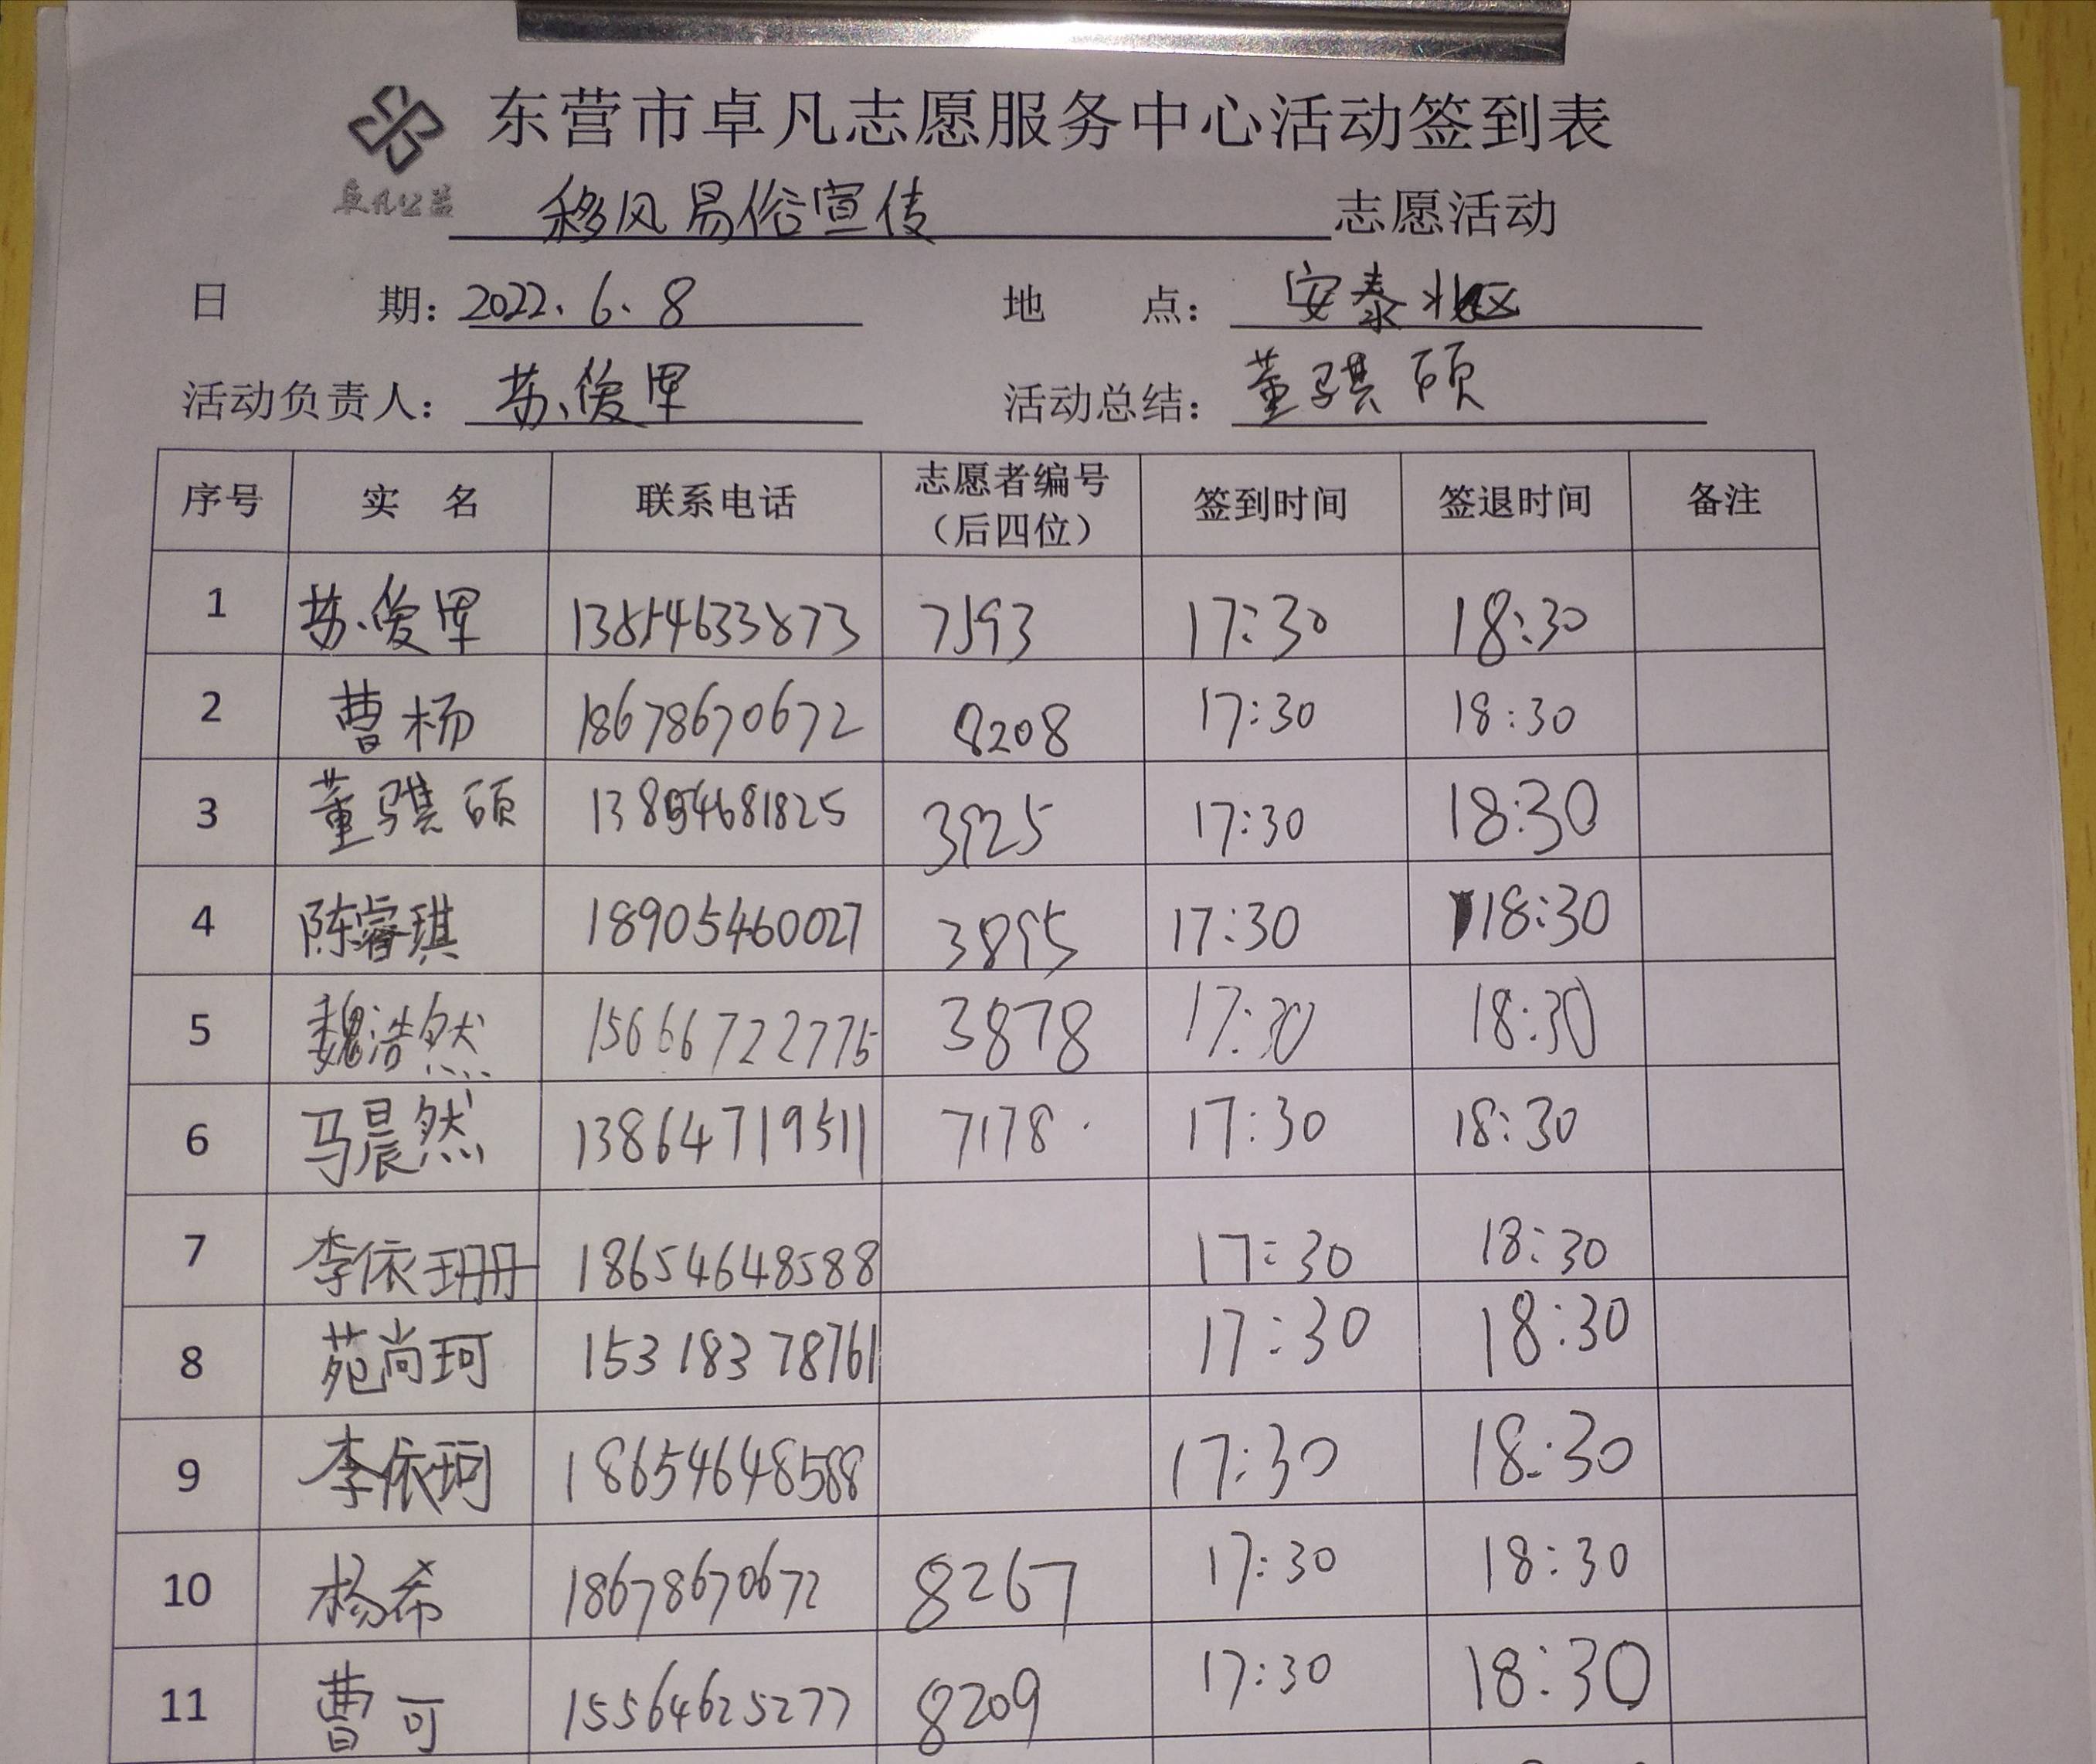 东营市卓凡志愿服务中心活动签到表
卓凡公益
移风易俗宣传 志愿活动
日 期：2022.6.8 地 点：安泰北区
活动负责人：苏俊军 活动总结：董骐硕
序号 实 名 联系电话 志愿者编号（后四位） 签到时间 签退时间 备注
1 苏俊军 13854633873 7593 17:30 18:30
2 曹杨 18678670672 8208 17:30 18:30
3 董骐硕 13854681825 3925 17:30 18:30
4 陈睿琪 18905460027 3895 17:30 18:30
5 魏浩然 15666722775 3878 17:30 18:30
6 马晨然 13864719511 7178 17:30 18:30
7 李依珊 18654648588 17:30 18:30
8 苑尚珂 15318378761 17:30 18:30
9 李依珂 18654648588 17:30 18:30
10 杨希 18678670672 8267 17:30 18:30
11 曹可 15564625277 8209 17:30 18:30